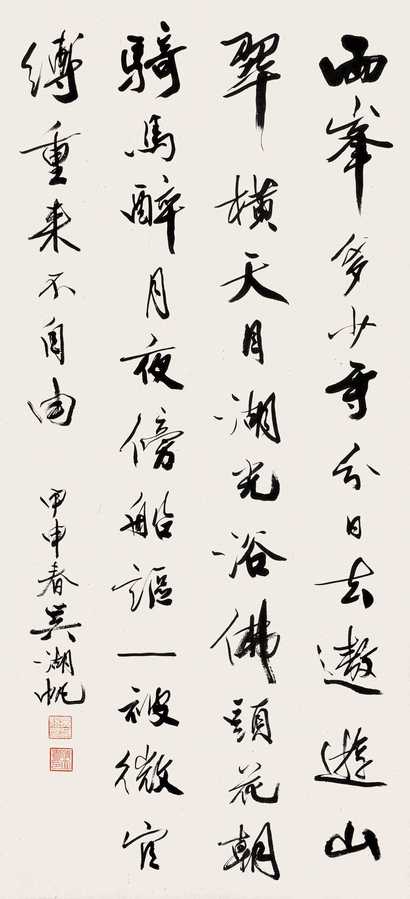 兩峯多少寺分日去遨遊山
翠橫天目湖光浴佛頭花朝
騎馬醉月夜傍船謳一被微官
縛重来不自由
甲申春吳湖帆